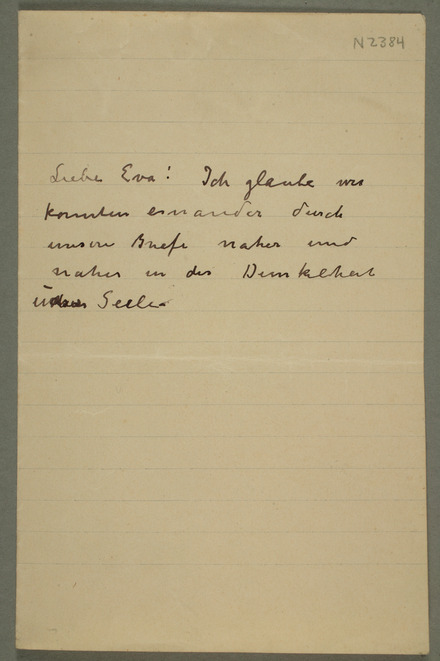 N2384
Liebe Eva! Ich glaube wir
konnten einander durch
unsere Briefe naher und
naher in der Dunkelheit
Seele